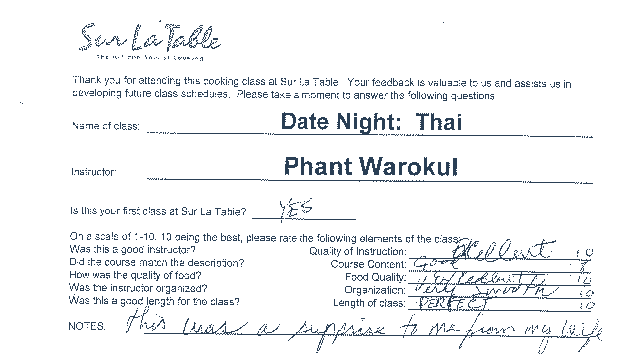 Sur La Table
The Art and Soul of Cooking
Thank you for attending this cooking class at Sur La Table. Your feedback is valuable to us and assists us in
developing future class schedules. Please take a moment to answer the following questions
Name of class: Date Night: Thai
Instructor: Phant Warokul
Is this your first class at Sur La Table? YES
On a scale of 1-10, 10 being the best, please rate the following elements of the class:
Was this a good instructor? Quality of Instruction: Excellent 10
Did the course match the description? Course Content: Good
How was the quality of food? Food Quality: Excellent 10
Was the instructor organized? Organization: Very Smooth 10
Was this a good length for the class? Length of class: PERFECT 10
NOTES: this was a supprise to me from my wife